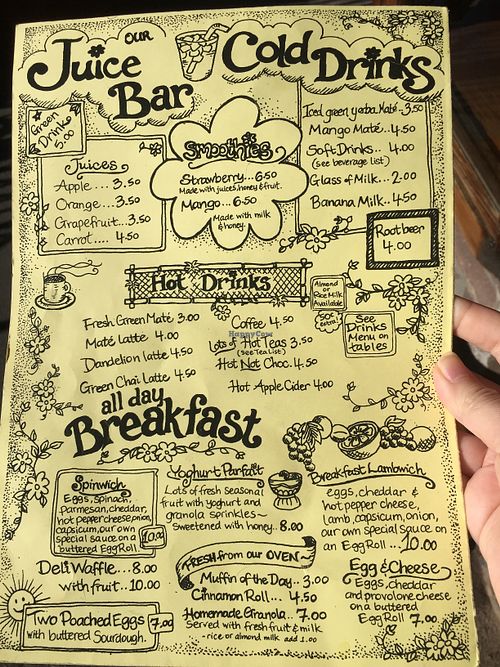 our
Juice
Bar
Cold Drinks
Green
Drinks
5.00
Juices
Apple.... 3.50
Orange... 3.50
Grapefruit...3.50
Carrot.... 4.50
Smoothies
Strawberry... 6.50
Made with juices, honey & fruit.
Mango.... 6.50
Made with milk
& honey.
Iced green yerba Maté.. 3.50
Mango Maté.. 4.50
Soft Drinks.. 4.00
(see beverage list)
Glass of Milk... 2.00
Banana Milk.. 4.50
Rootbeer
4.00
Hot Drinks
Almond
or
Rice Milk
Available
50¢
extra
See
Drinks
Menu on
tables
Fresh Green Maté 3.00
Maté latte 4.00
Dandelion latte 4.50
Green Chai Latte 4.50
Coffee 4.50
Lots of Hot Teas 3.50
(See Tea List)
Hot Not Choc. 4.50
Hot Apple Cider 4.00
HappyCow
all day
Breakfast
Spinwich
Eggs, spinach,
parmesan, cheddar,
hot pepper cheese, onion,
capsicum, our own
special sauce on a
buttered Egg Roll
10.00
Deli Waffle... 8.00
with fruit.. 10.00
Two Poached Eggs 7.00
with buttered Sourdough.
Yoghurt Parfait
Lots of fresh seasonal
fruit with yoghurt and
granola sprinkles ~
Sweetened with honey.. 8.00
FRESH from our OVEN~
Muffin of the Day... 3.00
Cinnamon Roll... 4.50
Homemade Granola.. 7.00
Served with fresh fruit & milk
- rice or almond milk add 1.00
Breakfast Lambwich
eggs, cheddar &
hot pepper cheese,
lamb, capsicum, onion,
our own special sauce on
an Egg Roll... 10.00
Egg & Cheese
Eggs, cheddar
and provolone cheese
on a buttered
Egg Roll 7.00